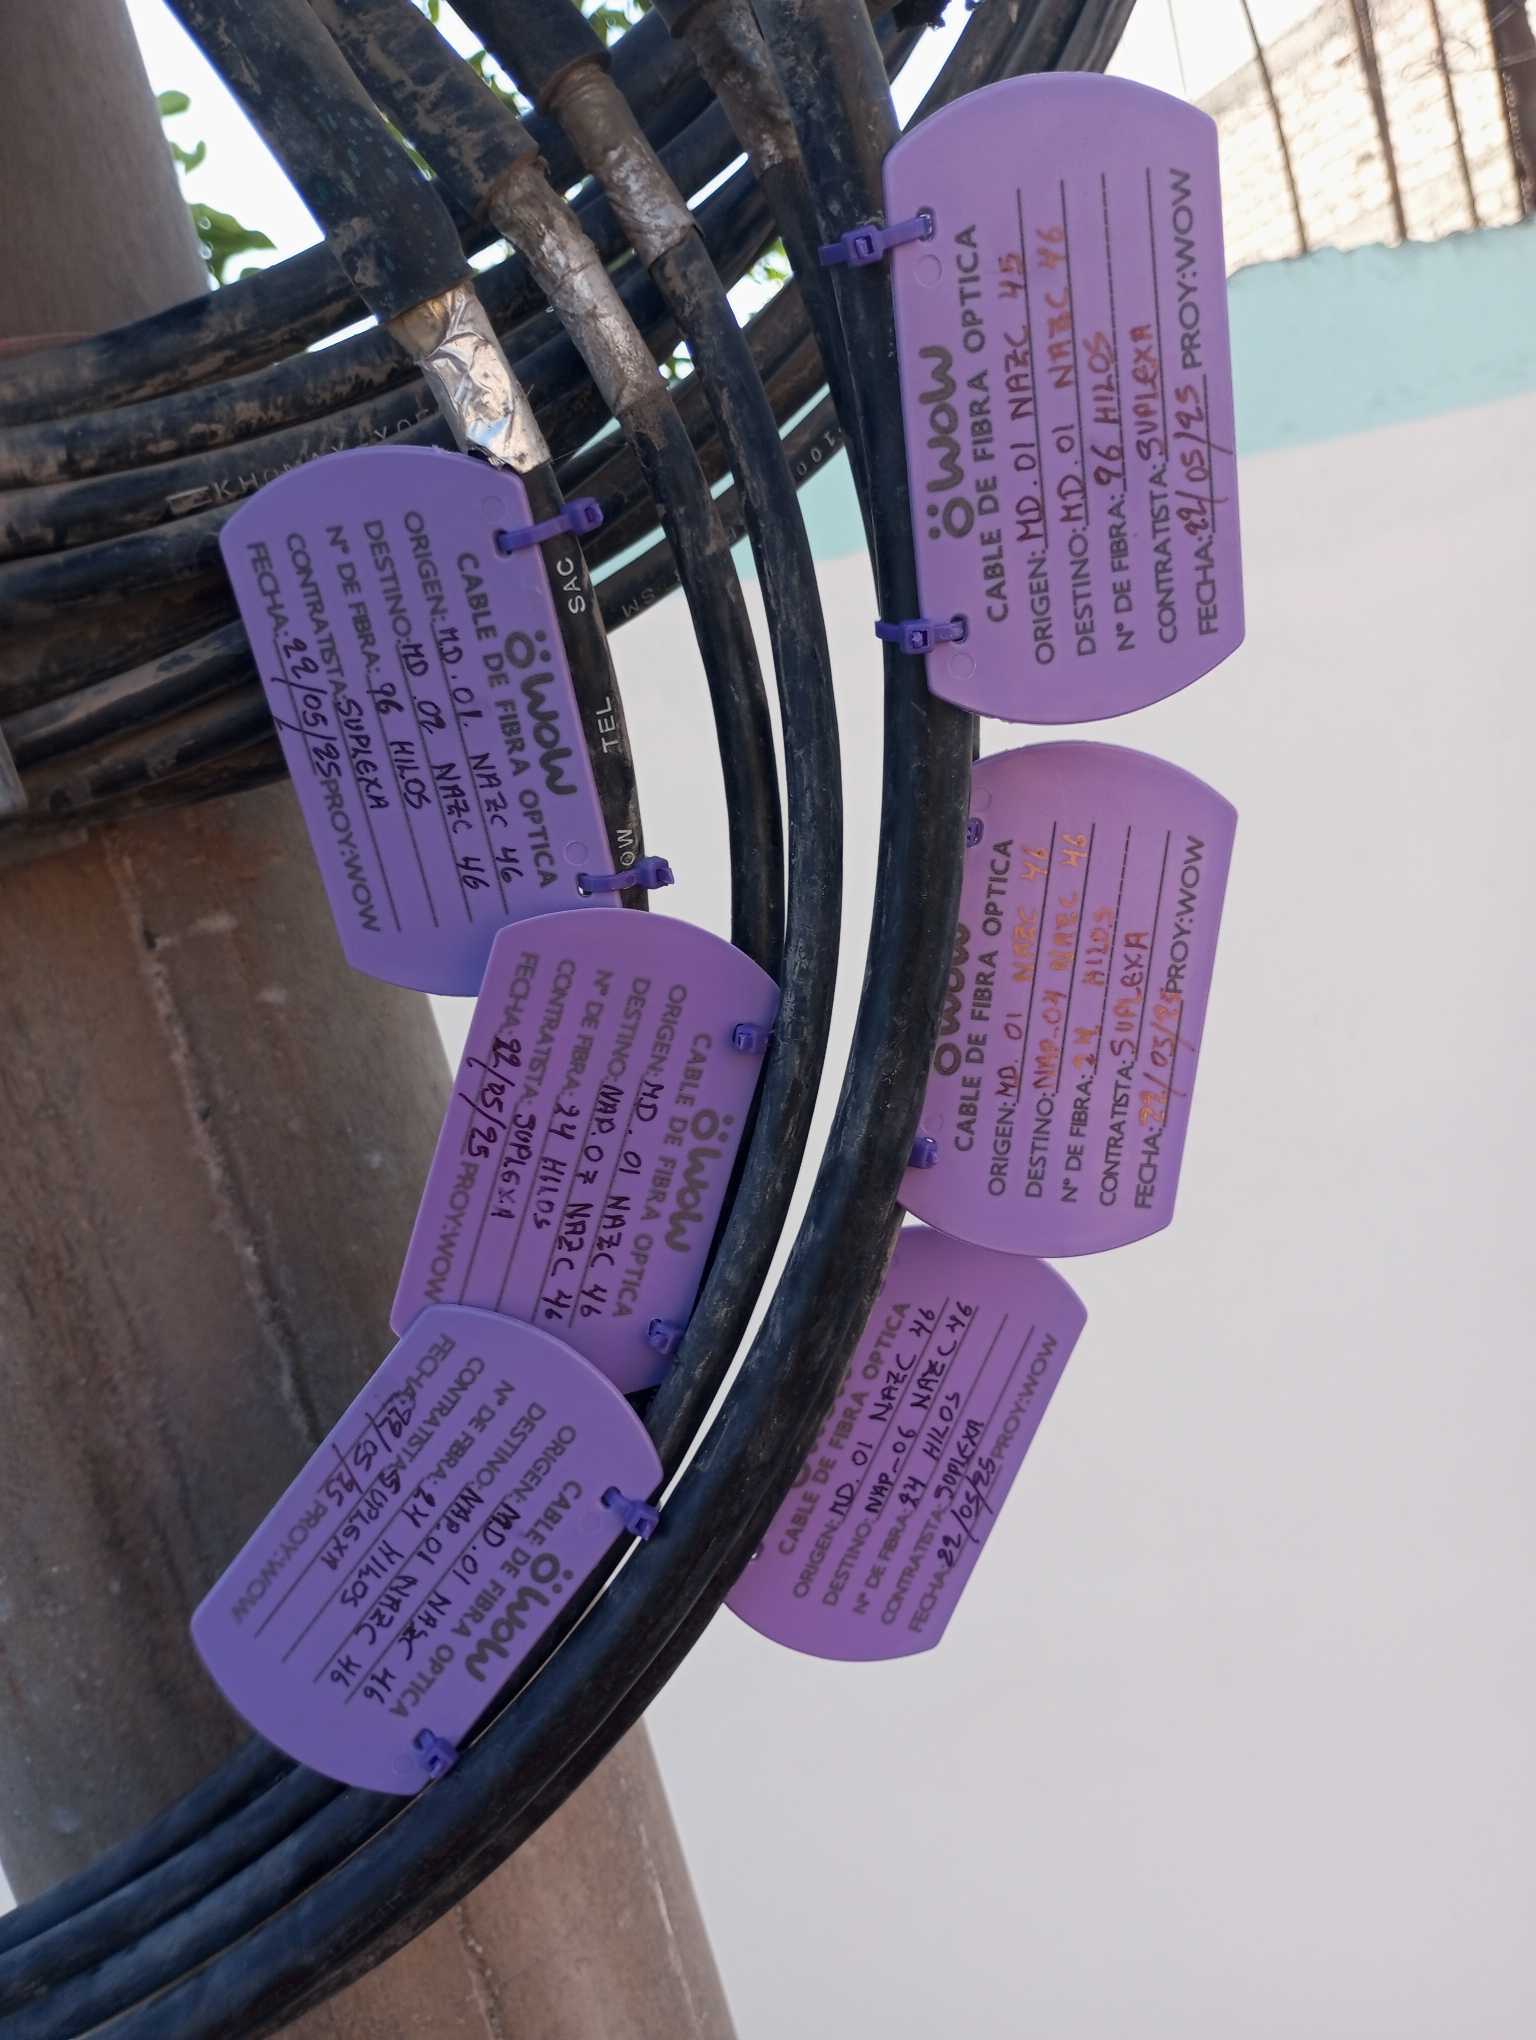 wow
CABLE DE FIBRA OPTICA
ORIGEN: MD.01 NAZC 45
DESTINO: MD.01 NAZC 46
N° DE FIBRA: 96 HILOS
CONTRATISTA: SUPLEXA
FECHA: 22/05/25 PROY:WOW
wow
CABLE DE FIBRA OPTICA
ORIGEN: MD.01. NAZC 46
DESTINO: MD.02 NAZC 46
N° DE FIBRA: 96 HILOS
CONTRATISTA: SUPLEXA
FECHA: 22/05/25 PROY:WOW
wow
CABLE DE FIBRA OPTICA
ORIGEN: MD. 01 NAZC 46
DESTINO: NAP-04 NAZC 46
N° DE FIBRA: 24 HILOS
CONTRATISTA: SUPLEXA
FECHA: 22/05/25 PROY:WOW
wow
CABLE DE FIBRA OPTICA
ORIGEN: MD. 01 NAZC 46
DESTINO: NAP.07 NAZC 46
N° DE FIBRA: 24 HILOS
CONTRATISTA: SUPLEXA
FECHA: 22/05/25 PROY:WOW
CABLE DE FIBRA OPTICA
ORIGEN: MD. 01 NAZC 46
DESTINO: NAP-06 NAZC 46
N° DE FIBRA: 24 HILOS
CONTRATISTA: SUPLEXA
FECHA: 22/05/25 PROY:WOW
wow
CABLE DE FIBRA OPTICA
ORIGEN: MD.01 NAZC 46
DESTINO: NAP.01 NAZC 46
N° DE FIBRA: 24 HILOS
CONTRATISTA: SUPLEXA
FECHA: 22/05/25 PROY:WOW
OW TEL SAC
SM